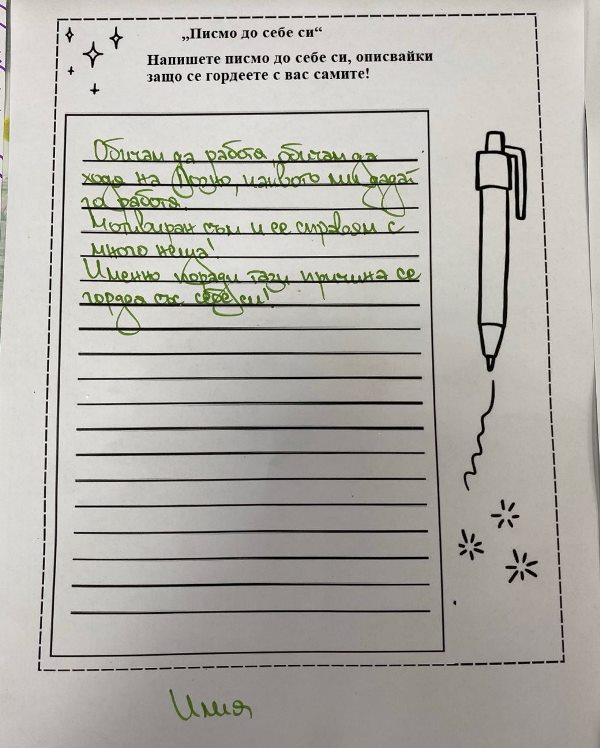 „Писмо до себе си“
Напишете писмо до себе си, описвайки
защо се гордеете с вас самите!
Обичам да работя, обичам да
ходя на ... каквото ми дадат
го работя.
Мотивиран съм и се справям с
много неща!
Именно поради тази причина се
гордея със себе си!
Илия